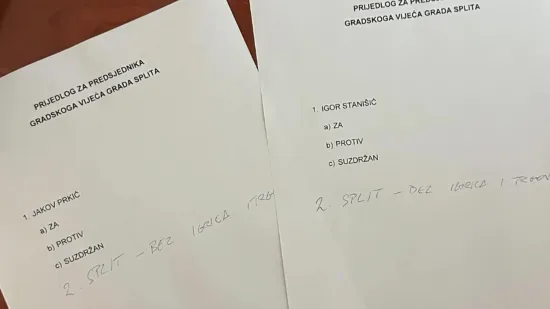 PRIJEDLOG ZA PREDSJEDNIKA
GRADSKOGA VIJEĆA GRADA SPLITA
1. JAKOV PRKIĆ
a) ZA
b) PROTIV
c) SUZDRŽAN
2. SPLIT – BEZ IGRICA
PRIJEDLOG ZA
GRADSKOGA VIJEĆA GRADA SPLITA
1. IGOR STANIŠIĆ
a) ZA
b) PROTIV
c) SUZDRŽAN
2. SPLIT – BEZ IGRICA I